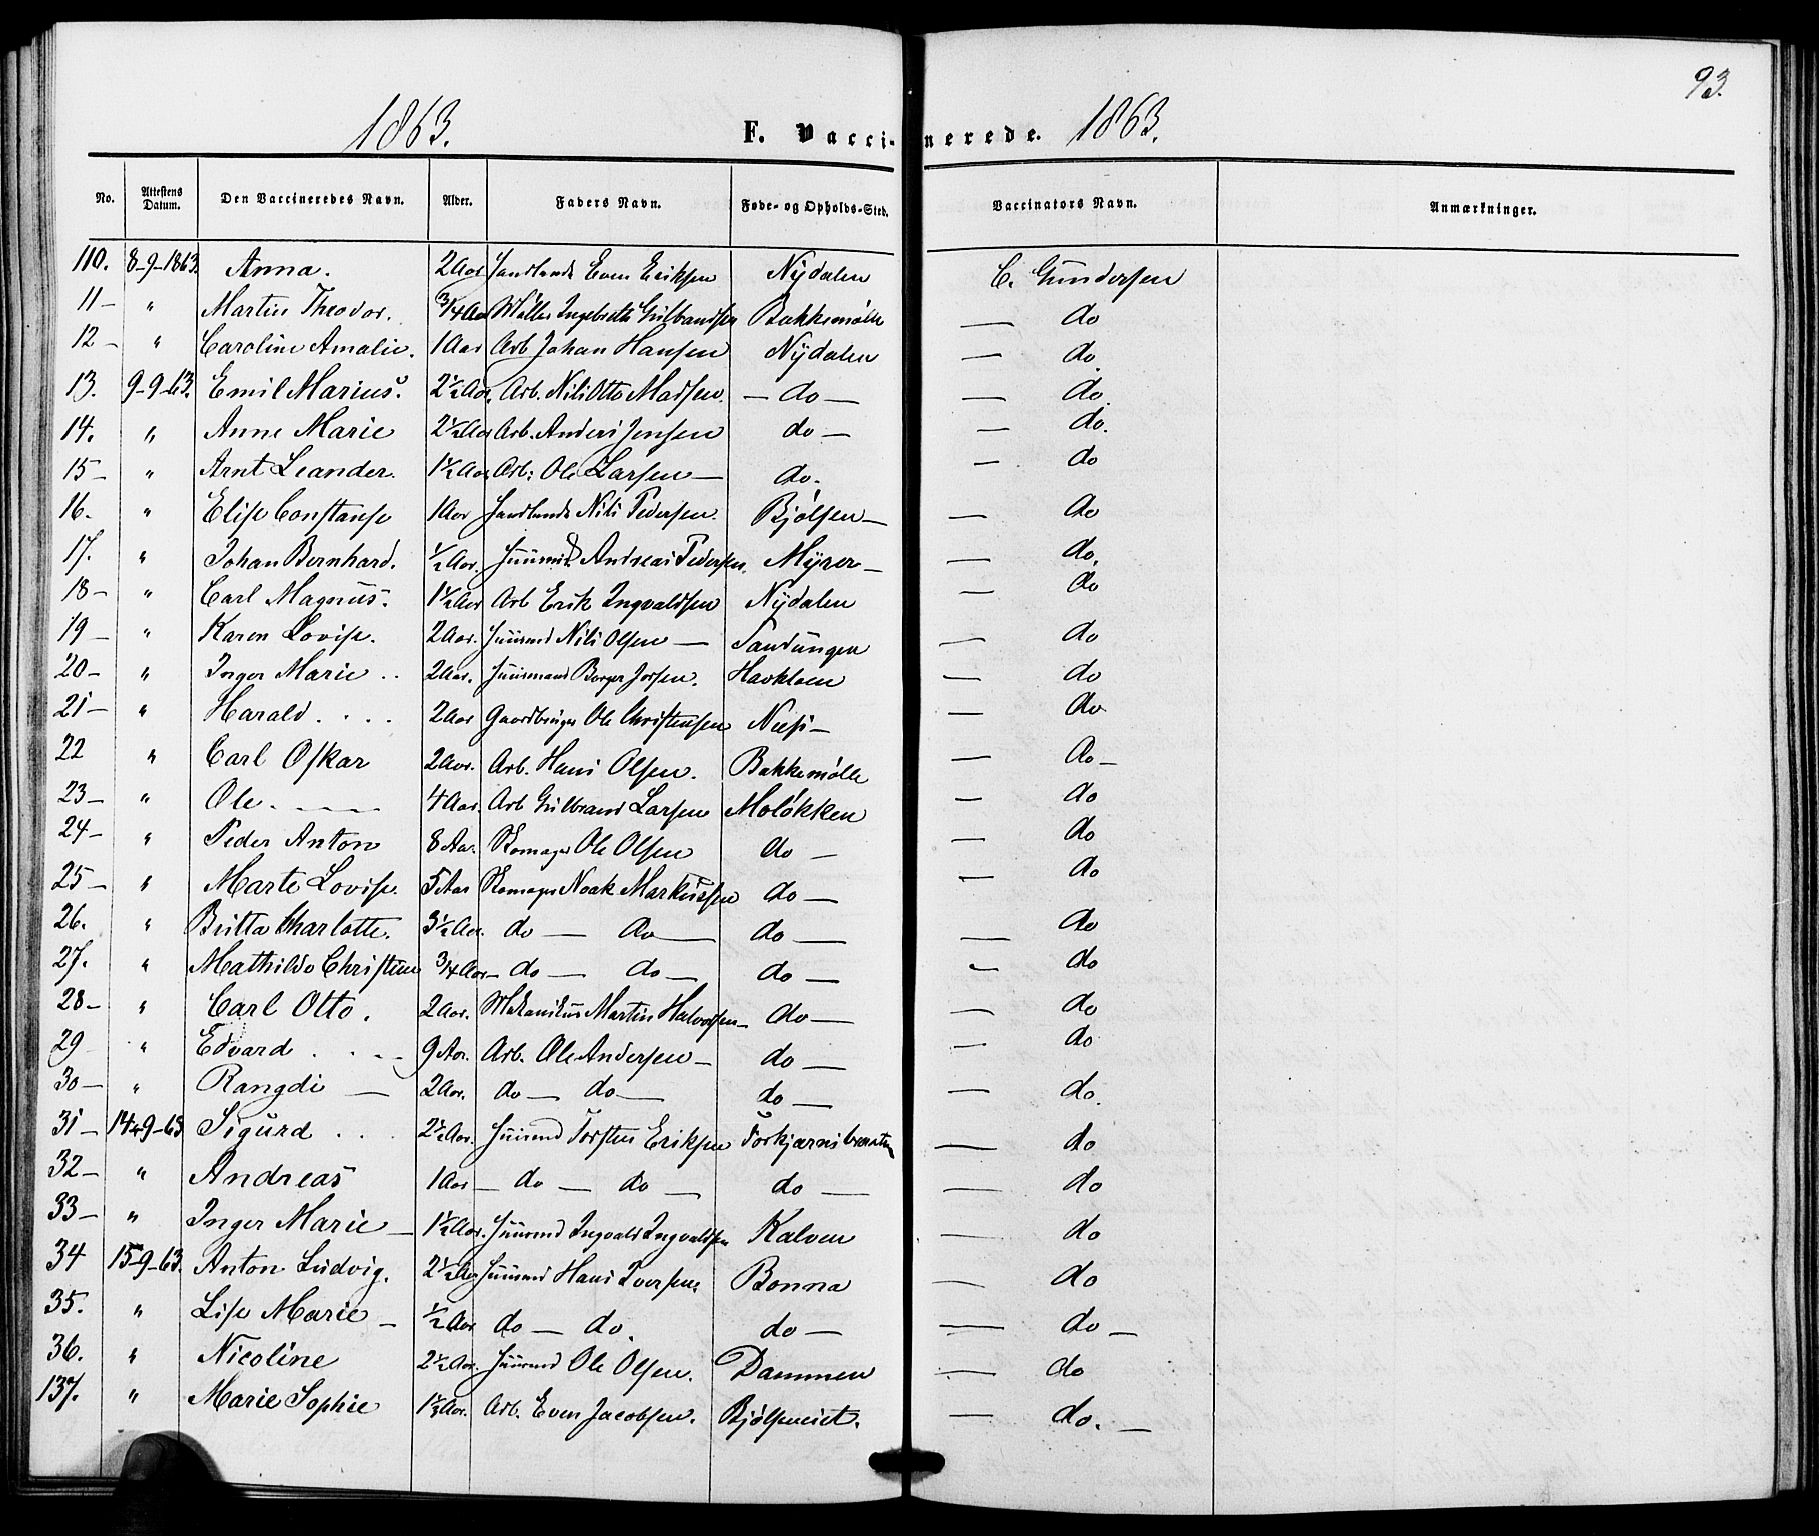 93.
1863. F. Vaccinerede. 1863.
No. Attestens Datum. Den Vaccineredes Navn. Alder. Faders Navn. Føde- og Opholds-Sted. Vaccinators Navn. Anmærkninger.
110. 8-9-1863. Anna. 2 Aar Even Eriksen Nÿdalen C. Gundersen
11 — " Martin Theodor. 3/4 Aar Møller Ingebreth Gulbrandsen Bakkemølle — do
12 — " Caroline Amalie. 1 Aar Arb Johan Hansen Nÿdalen — do.
13. 9-9-63. Emil Marius. 2 1/2 Aar. Arb. Nils Otto Madsen. — do — — do.
14. " Anne Marie 2 1/2 Aar Arb. Anders Jensen do — — do.
15 — " Arnt Leander. 1 1/2 Aar Arb: Ole Larsen — do. — do
16. " Elise Constanse 1 Aar Nils Pedersen. Bjølsen — — do
17. " Johan Bernhard. 1/2 Aar. Huusmd. Andreas Pedersen. Mÿrer — — do.
18 — " Carl Magnus. 1 1/2 Aar Arb Erik Ingvaldsen Nÿdalen — do
19 — " Karen Lovise. 2 Aar. Huusmd Nils Olsen — Sandungen — do
20 — " Inger Marie . . 2 Aar. Huusmand Borger Jossen. Havkloen — do
21 — " Harald . . . . 2 Aar Gaardbruger Ole Christensen Næsi — — do
22 " Carl Oskar 2 Aar. Arb. Hans Olsen. Bakkemølle — do —
23 — " Ole. — — — 4 Aar. Arb Gulbrand Larsen Moløkken — do
24 — " Peder Anton 8 Aar. Romager Ole Olsen do — — do
25 — " Marte Lovise. 5 Aar Romager Noak Markussen do — — do
26. " Britta Charlotte. 3 1/2 Aar. do — do — do — — do
27. " Mathilde Christine 3/4 Aar — do — do — do — — do
28 — " Carl Otto. 2 Aar. Mekanikus Martin Halvorsen — do — — do
29 " Edvard . . . . 9 Aar. Arb. Ole Andersen — do — — do
30 — " Rangdi — 2 Aar. do — do — do — — do.
31 — 14-9-63 Sigurd . . . 2 1/2 Aar. Huusmd Torsten Eriksen Torkjærnsbraaten — do
32 — " Andreas 1 Aar — do — do — do — — do
33 — " Inger Marie — 1 1/2 Aar. Huusmd Ingvald Ingvaldsen Kalven — do
34 15-9-63. Anton Ludvig. 2 1/2 Aar Huusmd Hans Iversen. Bonna — do
35. " Lise Marie — 1/2 Aar do — do. do — — do —
36. " Nicoline 2 1/2 Aar. Huusmd Ole Olsen. Dammen — do
137. " Marie Sophie 1 1/3 Aar. Arb. Even Jacobsen. Bjølseneiet. — do. —